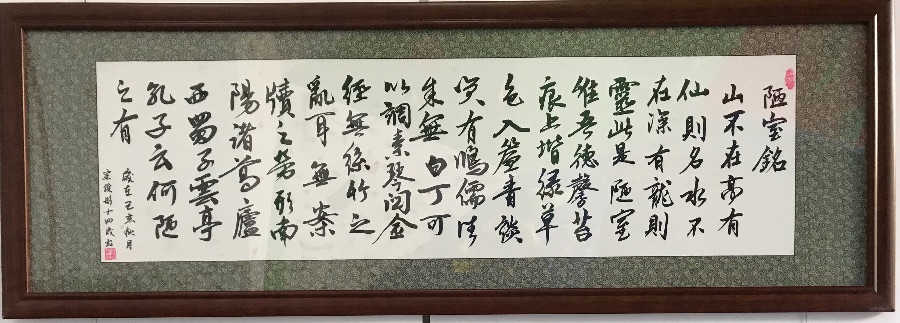 陋室銘
山不在高有
仙則名水不
在深有龍則
靈此是陋室
惟吾德馨苔
痕上堦綠草
色入簾青談
笑有鴻儒往
來無白丁可
以調素琴閱金
經無絲竹之
亂耳無案
牘之勞形南
陽諸葛廬
西蜀子雲亭
孔子云何陋
之有
歲在己亥秋月
十四歲書